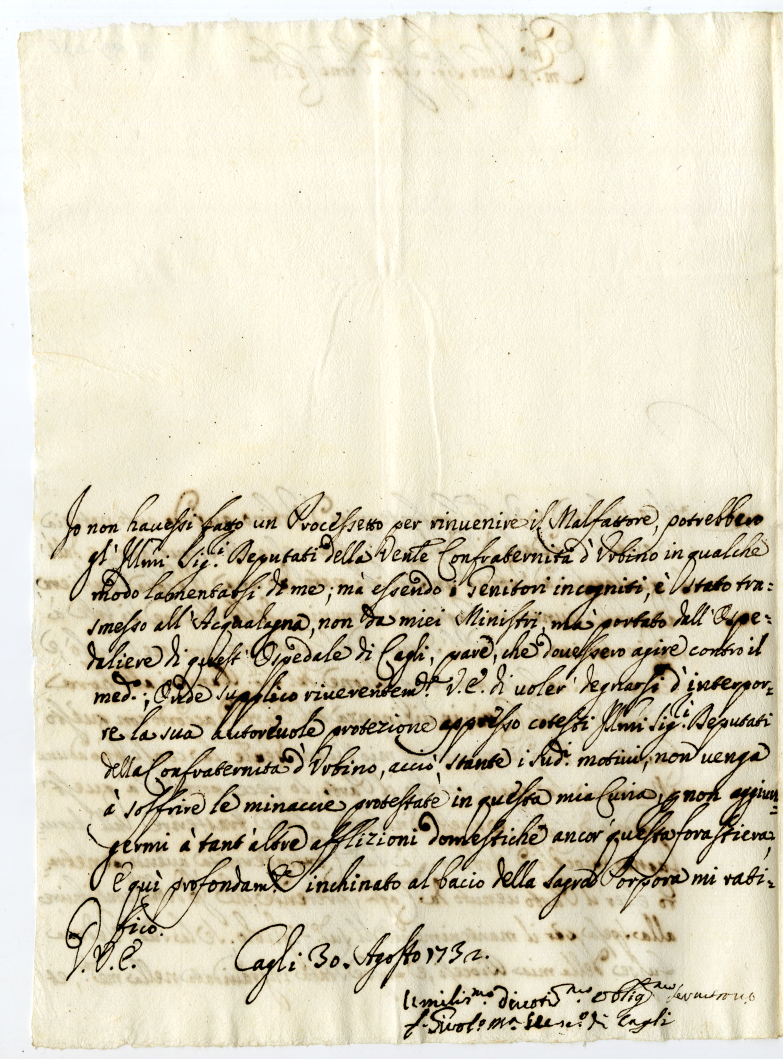 Io non havessi fatto un Processetto per rinvenire il Malfattore, potrebbero
gl' Illmi Sig.ri Deputati della Vente Confraternita d'Urbino in qualche
modo lamentarsi di me; mà essendo i Genitori incogniti, è stato tra=
smesso all'Acqualagna, non da miei Ministri, mà portato dall'Ospe=
daliere di quest'Ospedale di Cagli, pare, che dovessero agire contro il
med.o; Onde supplico riverentem.te V.E. di voler degnarsi d'interpor=
re la sua autorevole protezione appresso cotesti Illmi Sig.ri Deputati
della Confraternita d'Urbino, acciò stante i sud.i motivi, non venga
à soffrire le minaccie protestate in questa mia Curia, p non aggiun=
germi à tant'altre afflizioni domestiche ancor questa forastiera,
E quì profondam.te inchinato al bacio della sagra Porpora mi rati=
fico.
D.V.E. Cagli 30. Agosto 1732.
Umilis.mo divoti.mo oblig.mo
di Cagli